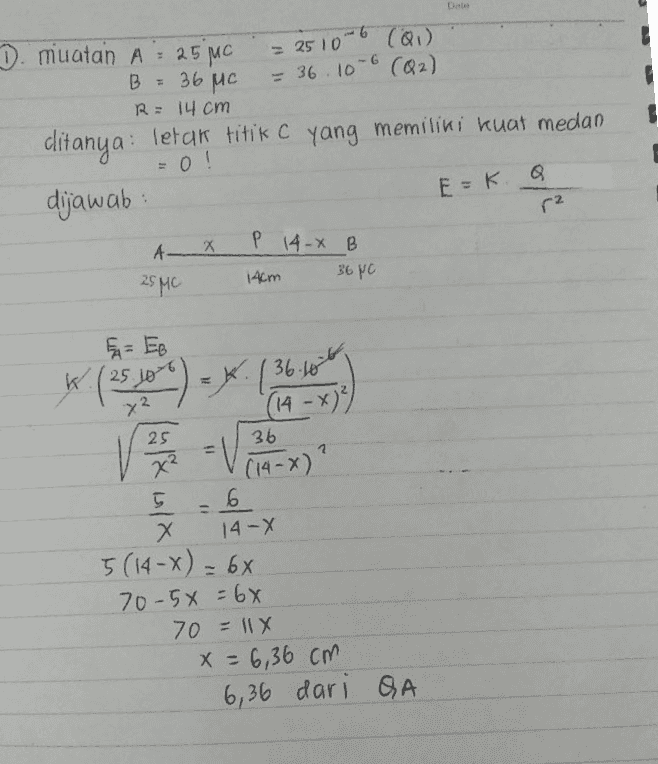 Date
①. muatan A = 25 μC = 25 10⁻⁶ (Q1)
B = 36 μC = 36 . 10⁻⁶ (Q2)
R = 14 cm
ditanya : letak titik C yang memiliki kuat medan
= 0 !
dijawab :
E = K Q/r²
A x P 14-x B
25 μC 14cm 36 μC
EA = EB
K. (25 10⁻⁶/x²) = K. (36.10⁻⁶/(14-x)²)
√25/x² = √36/(14-x)²
5/x = 6/14-x
5(14-x) = 6x
70-5x = 6x
70 = 11x
x = 6,36 cm
6,36 dari QA